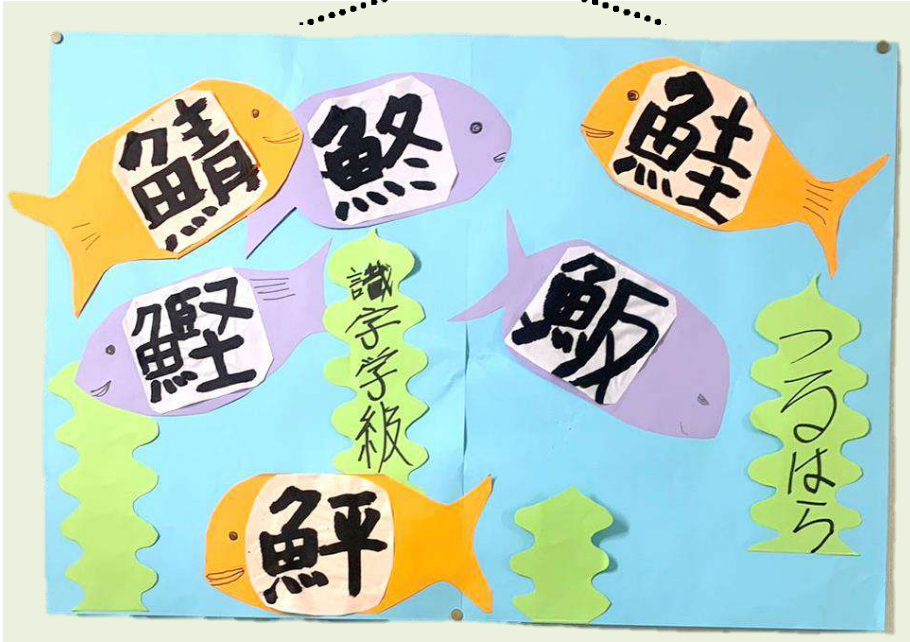 鯖
鮗
鮭
鰹
識字学級
魬
つるはら
鮃